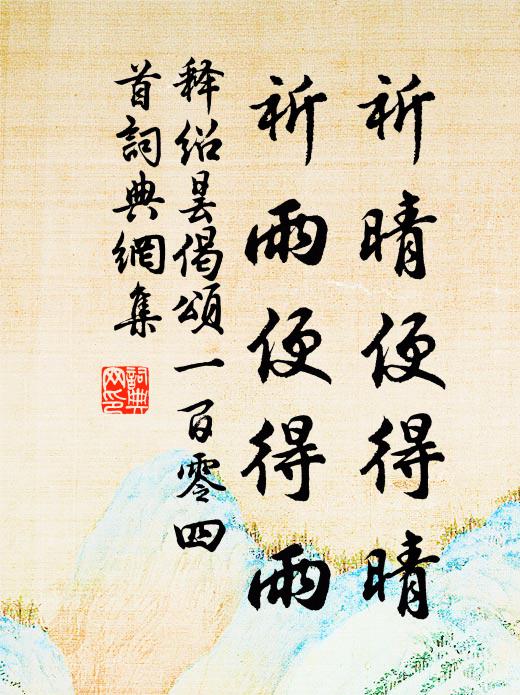 祈晴便得晴
祈雨便得雨
释绍昙偈頌一百零四
首詞典網集
詞典
网印